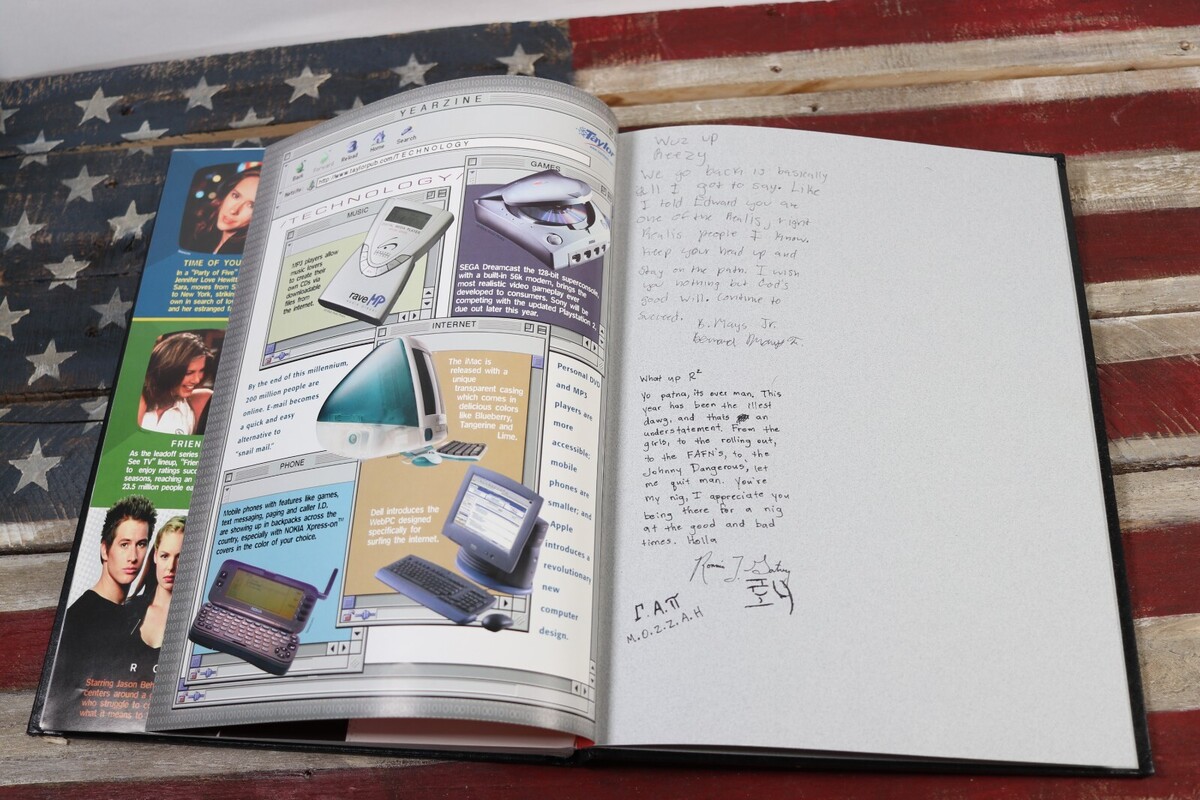 TIME OF YOU
In a "Party of Five"
Jennifer Love Hewitt
Sara, moves from S
to New York, strikin
own in search of
and her estranged f
FRIEN
As the leadoff series
See TV" lineup, "Frie
to enjoy ratings succ
seasons, reaching an
23.5 million people ea
R
Starring Jason Beh
centers around a
who struggle to c
what it means to
YEARZINE
Back
Forward
Reload
Home
Search
Taylor
Website:
http://www.taylorpub.com/TECHNOLOGY
/TECHNOLOGY/
MUSIC
MP3 players allow
music lovers
to create their
own CDs via
downloadable
files from
the Internet.
rave MP
GAMES
SEGA Dreamcast the 128-bit superconsole
with a built-in 56k modem, brings the
most realistic videogame play ever
developed to consumers. Sony will be
competing with the updated Playstation 2,
due out later this year.
INTERNET
By the end of this millennium,
200 million people are
online. E-mail becomes
a quick and easy
alternative to
"snail mail."
The iMac is
released with a
unique
transparent casing
which comes in
delicious colors
like Blueberry,
Tangerine and
Lime.
Personal DVD
and MP3
players are
more
accessible;
mobile
phones are
smaller; and
Apple
introduces a
revolutionary
new
computer
design.
PHONE
Mobile phones with features like games,
text messaging, paging and caller I.D.
are showing up in backpacks across the
country, especially with NOKIA Xpress-on™
covers in the color of your choice.
Dell introduces the
WebPC designed
specifically for
surfing the internet.
Wuz up
heezy
We go back is basically
all I got to say. Like
I told Edward you are
one of the Realis, right
Realis people I know.
Keep your head up and
stay on the path. I wish
you nothing but God's
good will. Continue to
succeed.
B. Mays Jr.
What up R²
Yo patna, its over man. This
year has been the illest
dawg, and thats an
understatement. From the
girls, to the rolling out,
to the FAFN's, to the
Johnny Dangerous, let
me quit man. You're
my nig, I appreciate you
being there for a nig
at the good and bad
times. Holla
Γ.Α.Π
M.O.Z.Z.A.H